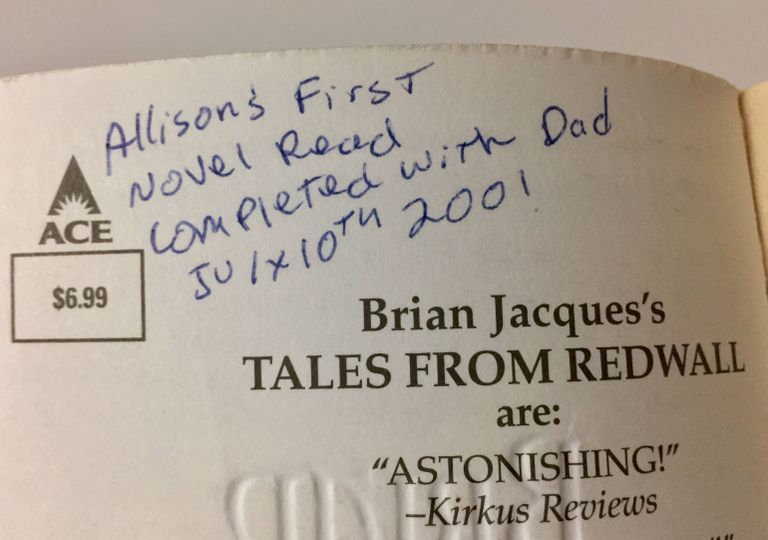 Allison's First
Novel Read
completed with Dad
July 10TH 2001
ACE
$6.99
Brian Jacques's
TALES FROM REDWALL
are:
“ASTONISHING!”
–Kirkus Reviews